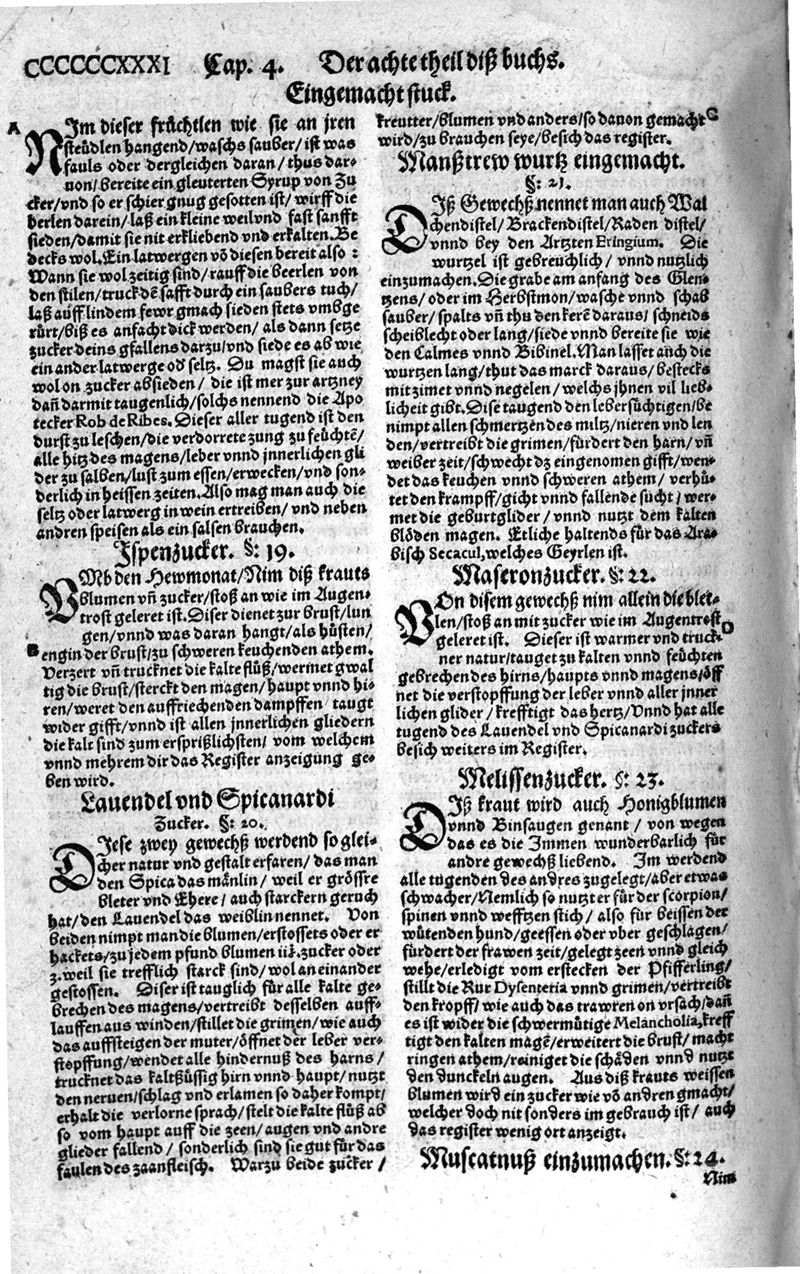 CCCCCCXXXI Cap. 4. Der achte theil diß buchs.
Eingemacht stuck.
A
NIm dieser früchtlen wie sie an jren
steüdlen hangend/waschs sauber/ist was
fauls oder dergleichen daran/thus dar-
uon/bereite ein gleuterten Syrup von Zu
cker/vnd so er schier gnug gesotten ist/wirff die
berlen darein/laß ein kleine weil vnd fast sanfft
sieden/damit sie nit erkliebend vnd erkalten. Be
decks wol. Ein latwergen võ diesen bereit also:
Wann sie wol zeitig sind/rauff die beerlen von
den stilen/truck dẽ safft durch ein saubers tuch/
laß auff lindem fewr gmach sieden stets vmbge
rürt/biß es anfacht dick werden/als dann setze
zucker deins gfallens darzu/vnd siede es ab wie
ein ander latwerge od seltz. Du magst sie auch
wol on zucker absieden/die ist mer zur artzney
dañ darmit taugenlich/solchs nennend die Apo
tecker Rob de Ribes. Dieser aller tugend ist den
durst zu leschen/die verdorrete zung zu feüchtẽ/
alle hitz des magens/leber vnnd jnnerlichen gli
der zu salben/lust zum essen/erwecken/vnd son-
derlich in heissen zeiten. Also mag man auch die
seltz oder latwerg in wein ertreiben/vnd neben
andren speisen als ein salsen brauchen.
Ispenzucker. §: 19.
VMb den Hewmonat/Nim diß krauts
blumen vñ zucker/stoß an wie im Augen-
trost geleret ist. Diser dienet zur brust/lun
gen/vnnd was daran hangt/als hüsten/
B
engin der brust/zu schweren keuchenden athem.
Verzert vñ trucknet die kalte flüß/wermet gwal
tig die brust/sterckt den magen/haupt vnnd hi-
ren/weret den auffriechenden dampffen taugt
wider gifft/vnnd ist allen jnnerlichen gliedern
die kalt sind zum ersprißlichsten/ vom welchem
vnnd mehrem dir das Register anzeigung ge-
ben wird.
Lauendel vnd Spicanardi
Zucker. §: 20.
DIese zwey gewechß werdend so glei-
cher natur vnd gestalt erfaren/das man
den Spica das mänlin/weil er grössre
bleter vnd Ehere/auch starckern geruch
hat/den Lauendel das weiblin nennet. Von
beiden nimpt man die blumen/erstossets oder er
hackets/zu jedem pfund blumen iij. zucker oder
z. weil sie trefflich starck sind/wol an einander
gestossen. Diser ist tauglich für alle kalte ge-
brechen des magens/vertreibt desselben auff-
lauffen aus winden/stillet die grimen/wie auch
das auffsteigen der muter/öffnet der leber ver-
stopffung/wendet alle hindernuß des harns/
trucknet das kaltflüssig hirn vnnd haupt/nutzt
den neruen/schlag vnd erlamen so daher kompt/
erhalt die verlorne sprach/stelt die kalte flüß ab
so vom haupt auff die zeen/augen vnd andre
glieder fallend/ sonderlich sind sie gut für das
faulen des zaanfleisch. Warzu beide zucker/
kreutter/blumen vnd anders/so dauon gemacht
C
wird/zu brauchen seye/besich das register.
Manßtrew wurtz eingemacht.
§: 21.
DIß Gewechß nennet man auch Wal
chendistel/Brackendistel/Raden distel/
vnnd bey den Artzten Eringium. Die
wurtzel ist gebreuchlich/ vnnd nutzlich
einzumachen. Die grabe am anfang des Glen-
tzens/oder im Herbstmon/wasche vnnd schab
sauber/spalts vñ thu den kerẽ daraus/schneids
scheiblecht oder lang/siede vnnd bereite sie wie
den Calmes vnnd Bibinel. Man lasset auch die
wurtzen lang/thut das marck daraus/bestecks
mit zimet vnnd negelen/welchs jhnen vil lieb-
licheit gibt. Dise taugend den lebersüchtigen/be
nimpt allen schmertzen des miltz/nieren vnd len
den/vertreibt die grimen/fürdert den harn/vñ
weiber zeit/schwecht dz eingenomen gifft/wen-
det das keuchen vnnd schweren athem/ verhü-
tet den krampff/gicht vnnd fallende sucht/wer-
met die geburtglider/vnnd nutzt dem kalten
blöden magen. Etliche haltends für das Ara-
bisch Secacul, welches Geyrlen ist.
Maseronzucker. §: 22.
VOn disem gewechß nim allein die blet-
len/stoß an mit zucker wie im Augentrost
D
geleret ist. Dieser ist warmer vnd truck-
ner natur/tauget zu kalten vnnd feüchten
gebrechen des hirns/haupts vnnd magens/öff
net die verstopffung der leber vnnd aller jnner
lichen glider/krefftigt das hertz/Vnnd hat alle
tugend des Lauendel vnd Spicanardi zuckers
besich weiters im Register.
Melissenzucker. §: 23.
DIß kraut wird auch Honigblumen
vnnd Binsaugen genant/von wegen
das es die Immen wunderbarlich für
andre gewechß liebend. Im werdend
alle tugenden des andres zugelegt/aber etwas
schwacher/Nemlich so nutzt er für der scorpion/
spinen vnnd wefftzen stich/also für beissen der
wütenden hund/geessen oder vber geschlagen/
fürdert der frawen zeit/gelegt zeen vnnd gleich
wehe/erledigt vom erstecken der Pfifferling/
stillt die Rur Dysenteria vnnd grimen/vertreibt
den kropff/wie auch das trawren on vrsach/dañ
es ist wider die schwermütige Melancholia, kreff
tigt den kalten magẽ/erweitert die brust/macht
ringen athem/reiniget die schäden vnnd nutzt
den dunckeln augen. Aus diß krauts weissen
blumen wird ein zucker wie võ andren gmacht/
welcher doch nit sonders im gebrauch ist/auch
das register wenig ort anzeigt.
Muscatnuß einzumachen. §: 24.
Nim